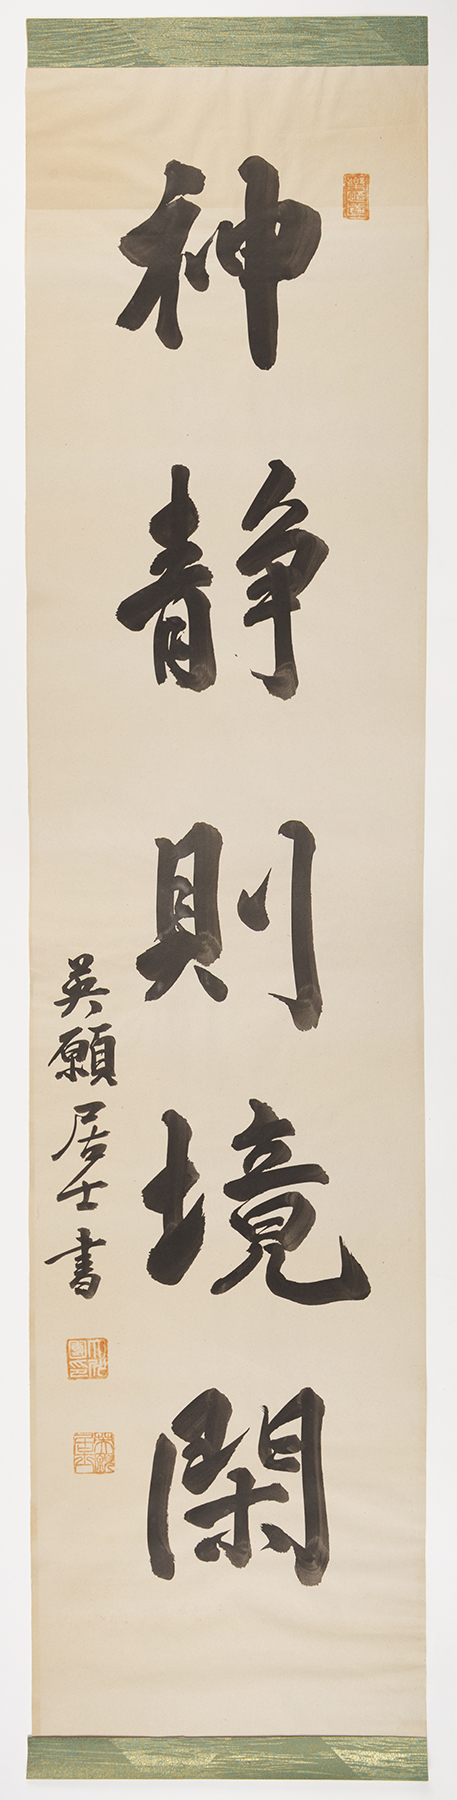 神静則境閑
英願居士書